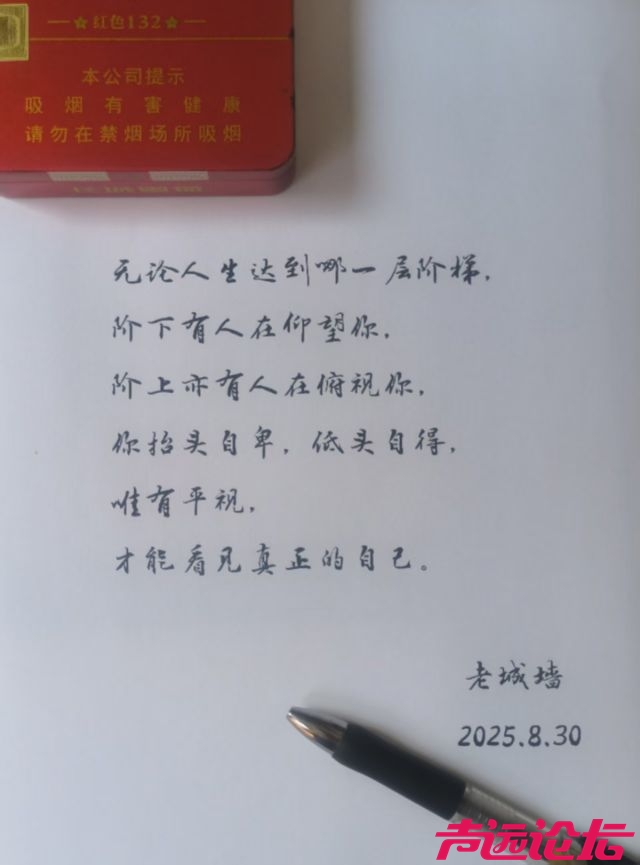 红色132
本公司提示
吸烟有害健康
请勿在禁烟场所吸烟
无论人生达到哪一层阶梯，
阶下有人在仰望你，
阶上亦有人在俯视你，
你抬头自卑，低头自得，
唯有平视，
才能看见真正的自己。
老城墙
2025.8.30
声远论坛